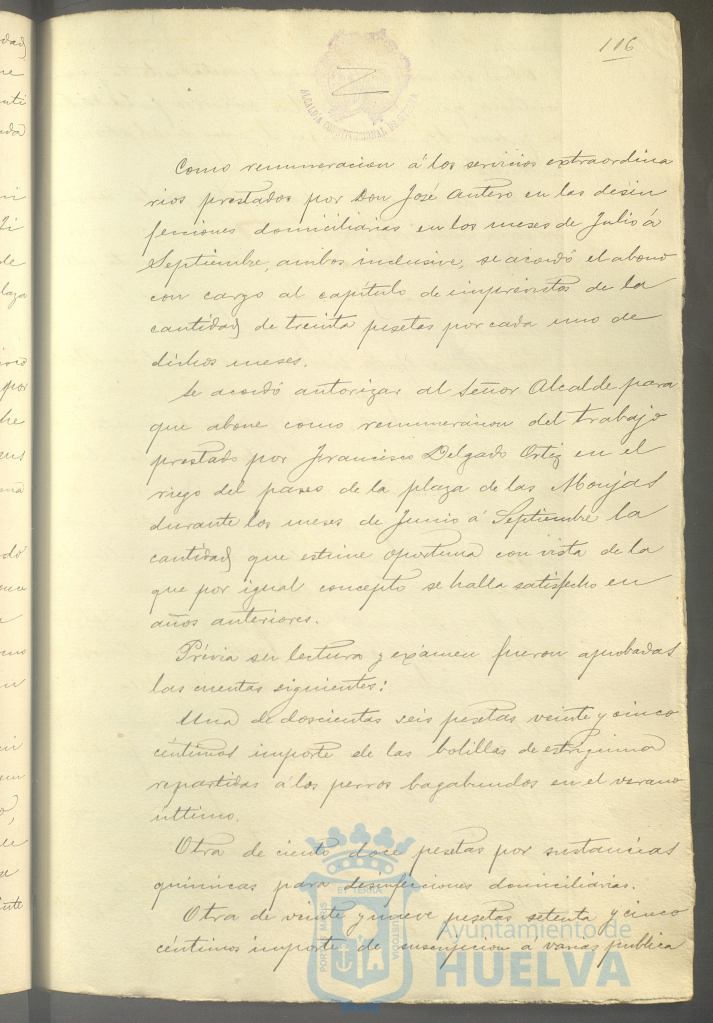 116
ALCALDIA CONSTITUCIONAL DE HUELVA
Como remuneracion á los servicios extraordina
rios prestados por Don José Antero en las desin
fecciones domiciliarias en los meses de Julio á
Septiembre, ambos inclusive, se acordó el abono
con cargo al capítulo de imprevistos de la
cantidad de treinta pesetas por cada uno de
dichos meses.
Se acordó autorizar al Señor Alcalde para
que abone como remuneracion del trabajo
prestado por Francisco Delgado Ortiz en el
riego del paseo de la plaza de las Monjas
durante los meses de Junio á Septiembre la
cantidad que estime oportuna con vista de la
que por igual concepto se halla satisfecho en
años anteriores.
Prévia su lectura y exámen fueron aprobadas
las cuentas siguientes:
Una de doscientas seis pesetas veinte y cinco
céntimos importe de las bolillas de estrignina
repartidas á los perros bagabundos en el verano
último.
Otra de ciento doce pesetas por sustancias
quimicas para desinfecciones domiciliarias.
Otra de veinte y nueve pesetas setenta y cinco
céntimos importe de suscripcion a varias publica
PORTUS MARIS ET TERRÆ CUSTODIA
Ayuntamiento de
HUELVA